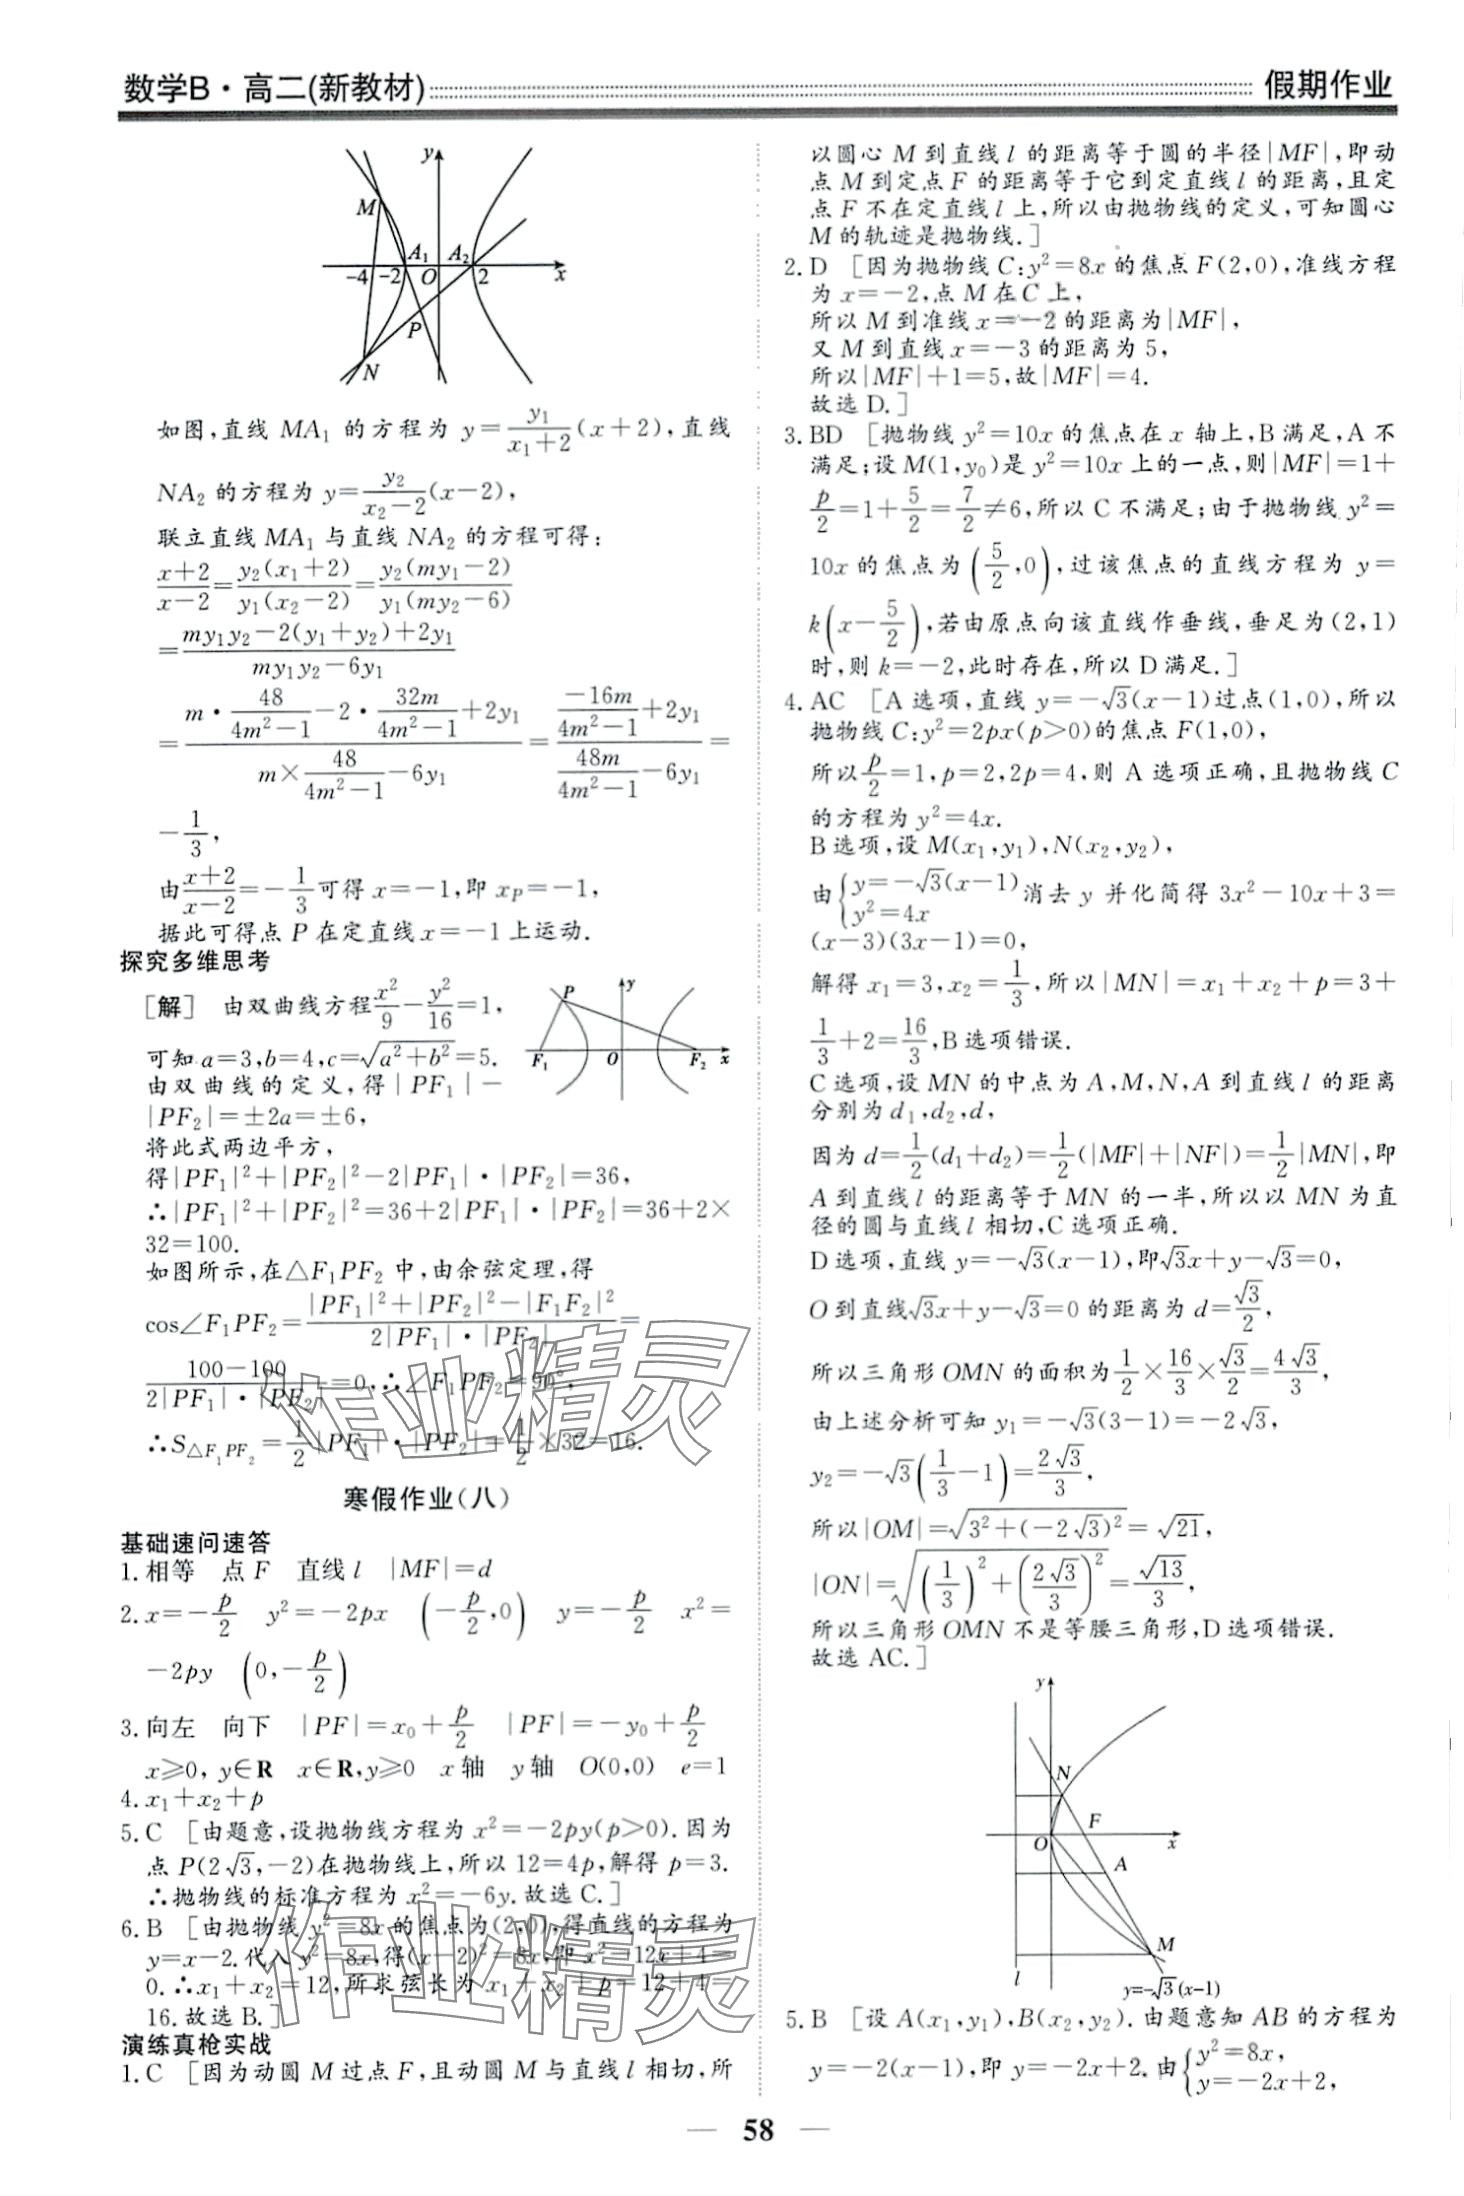 数学B·高二(新教材) 假期作业
y
M
A₁ A₂
-4 -2 O 2 x
P
N
如图,直线 MA₁ 的方程为 y=y₁/(x₁+2)(x+2),直线
NA₂ 的方程为 y=y₂/(x₂-2)(x-2),
联立直线 MA₁ 与直线 NA₂ 的方程可得:
(x+2)/(x-2)=y₂(x₁+2)/y₁(x₂-2)=y₂(my₁-2)/y₁(my₂-6)
=(my₁y₂-2(y₁+y₂)+2y₁)/(my₁y₂-6y₁)
=(m·48/(4m²-1)-2·32m/(4m²-1)+2y₁)/(m×48/(4m²-1)-6y₁)=(-16m/(4m²-1)+2y₁)/(48m/(4m²-1)-6y₁)=
-1/3,
由(x+2)/(x-2)=-1/3可得 x=-1,即 x_P=-1,
据此可得点 P 在定直线 x=-1 上运动.
探究多维思考
[解] 由双曲线方程x²/9-y²/16=1,
可知 a=3,b=4,c=√(a²+b²)=5.
由双曲线的定义,得|PF₁|-
|PF₂|=±2a=±6,
P y F₁ O F₂ x
将此式两边平方,
得|PF₁|²+|PF₂|²-2|PF₁|·|PF₂|=36,
∴|PF₁|²+|PF₂|²=36+2|PF₁|·|PF₂|=36+2×
32=100.
如图所示,在△F₁PF₂ 中,由余弦定理,得
cos∠F₁PF₂=(|PF₁|²+|PF₂|²-|F₁F₂|²)/(2|PF₁|·|PF₂|)=
(100-100)/(2|PF₁|·|PF₂|)=0,∴∠F₁PF₂=90°,
∴S△F₁PF₂=1/2|PF₁|·|PF₂|=1/2×32=16.
寒假作业(八)
基础速问速答
1.相等 点 F 直线 l |MF|=d
2.x=-p/2 y²=-2px (-p/2,0) y=-p/2 x²=
-2py (0,-p/2)
3.向左 向下 |PF|=x₀+p/2 |PF|=-y₀+p/2
x≥0,y∈R x∈R,y≥0 x 轴 y 轴 O(0,0) e=1
4.x₁+x₂+p
5.C [由题意,设抛物线方程为 x²=-2py(p>0).因为
点 P(2√3,-2)在抛物线上,所以 12=4p,解得 p=3.
∴抛物线的标准方程为 x²=-6y.故选 C.]
6.B [由抛物线 y²=8x 的焦点为(2,0),得直线的方程为
y=x-2.代入 y²=8x,得(x-2)²=8x,即 x²-12x+4=
0.∴x₁+x₂=12,所求弦长为 x₁+x₂+p=12+4=
16.故选 B.]
演练真枪实战
1.C [因为动圆 M 过点 F,且动圆 M 与直线 l 相切,所
以圆心 M 到直线 l 的距离等于圆的半径|MF|,即动
点 M 到定点 F 的距离等于它到定直线 l 的距离,且定
点 F 不在定直线 l 上,所以由抛物线的定义,可知圆心
M 的轨迹是抛物线.]
2.D [因为抛物线 C:y²=8x 的焦点 F(2,0),准线方程
为 x=-2,点 M 在 C 上,
所以 M 到准线 x=-2 的距离为|MF|,
又 M 到直线 x=-3 的距离为 5,
所以|MF|+1=5,故|MF|=4.
故选 D.]
3.BD [抛物线 y²=10x 的焦点在 x 轴上,B 满足,A 不
满足;设 M(1,y₀)是 y²=10x 上的一点,则|MF|=1+
p/2=1+5/2=7/2≠6,所以 C 不满足;由于抛物线 y²=
10x 的焦点为(5/2,0),过该焦点的直线方程为 y=
k(x-5/2),若由原点向该直线作垂线,垂足为(2,1)
时,则 k=-2,此时存在,所以 D 满足.]
4.AC [A 选项,直线 y=-√3(x-1)过点(1,0),所以
抛物线 C:y²=2px(p>0)的焦点 F(1,0),
所以p/2=1,p=2,2p=4,则 A 选项正确,且抛物线 C
的方程为 y²=4x.
B 选项,设 M(x₁,y₁),N(x₂,y₂),
由{y=-√3(x-1) y²=4x 消去 y 并化简得 3x²-10x+3=
(x-3)(3x-1)=0,
解得 x₁=3,x₂=1/3,所以|MN|=x₁+x₂+p=3+
1/3+2=16/3,B 选项错误.
C 选项,设 MN 的中点为 A,M,N,A 到直线 l 的距离
分别为 d₁,d₂,d,
因为 d=1/2(d₁+d₂)=1/2(|MF|+|NF|)=1/2|MN|,即
A 到直线 l 的距离等于 MN 的一半,所以以 MN 为直
径的圆与直线 l 相切,C 选项正确.
D 选项,直线 y=-√3(x-1),即√3x+y-√3=0,
O 到直线√3x+y-√3=0 的距离为 d=√3/2,
所以三角形 OMN 的面积为1/2×16/3×√3/2=4√3/3,
由上述分析可知 y₁=-√3(3-1)=-2√3,
y₂=-√3(1/3-1)=2√3/3,
所以|OM|=√(3²+(-2√3)²)=√21,
|ON|=√((1/3)²+(2√3/3)²)=√13/3,
所以三角形 OMN 不是等腰三角形,D 选项错误.
故选 AC.]
y
N
F
O x
A
M
l
y=-√3(x-1)
5.B [设 A(x₁,y₁),B(x₂,y₂).由题意知 AB 的方程为
y=-2(x-1),即 y=-2x+2.由{y²=8x, y=-2x+2,
— 58 —
作业精灵
作业精灵